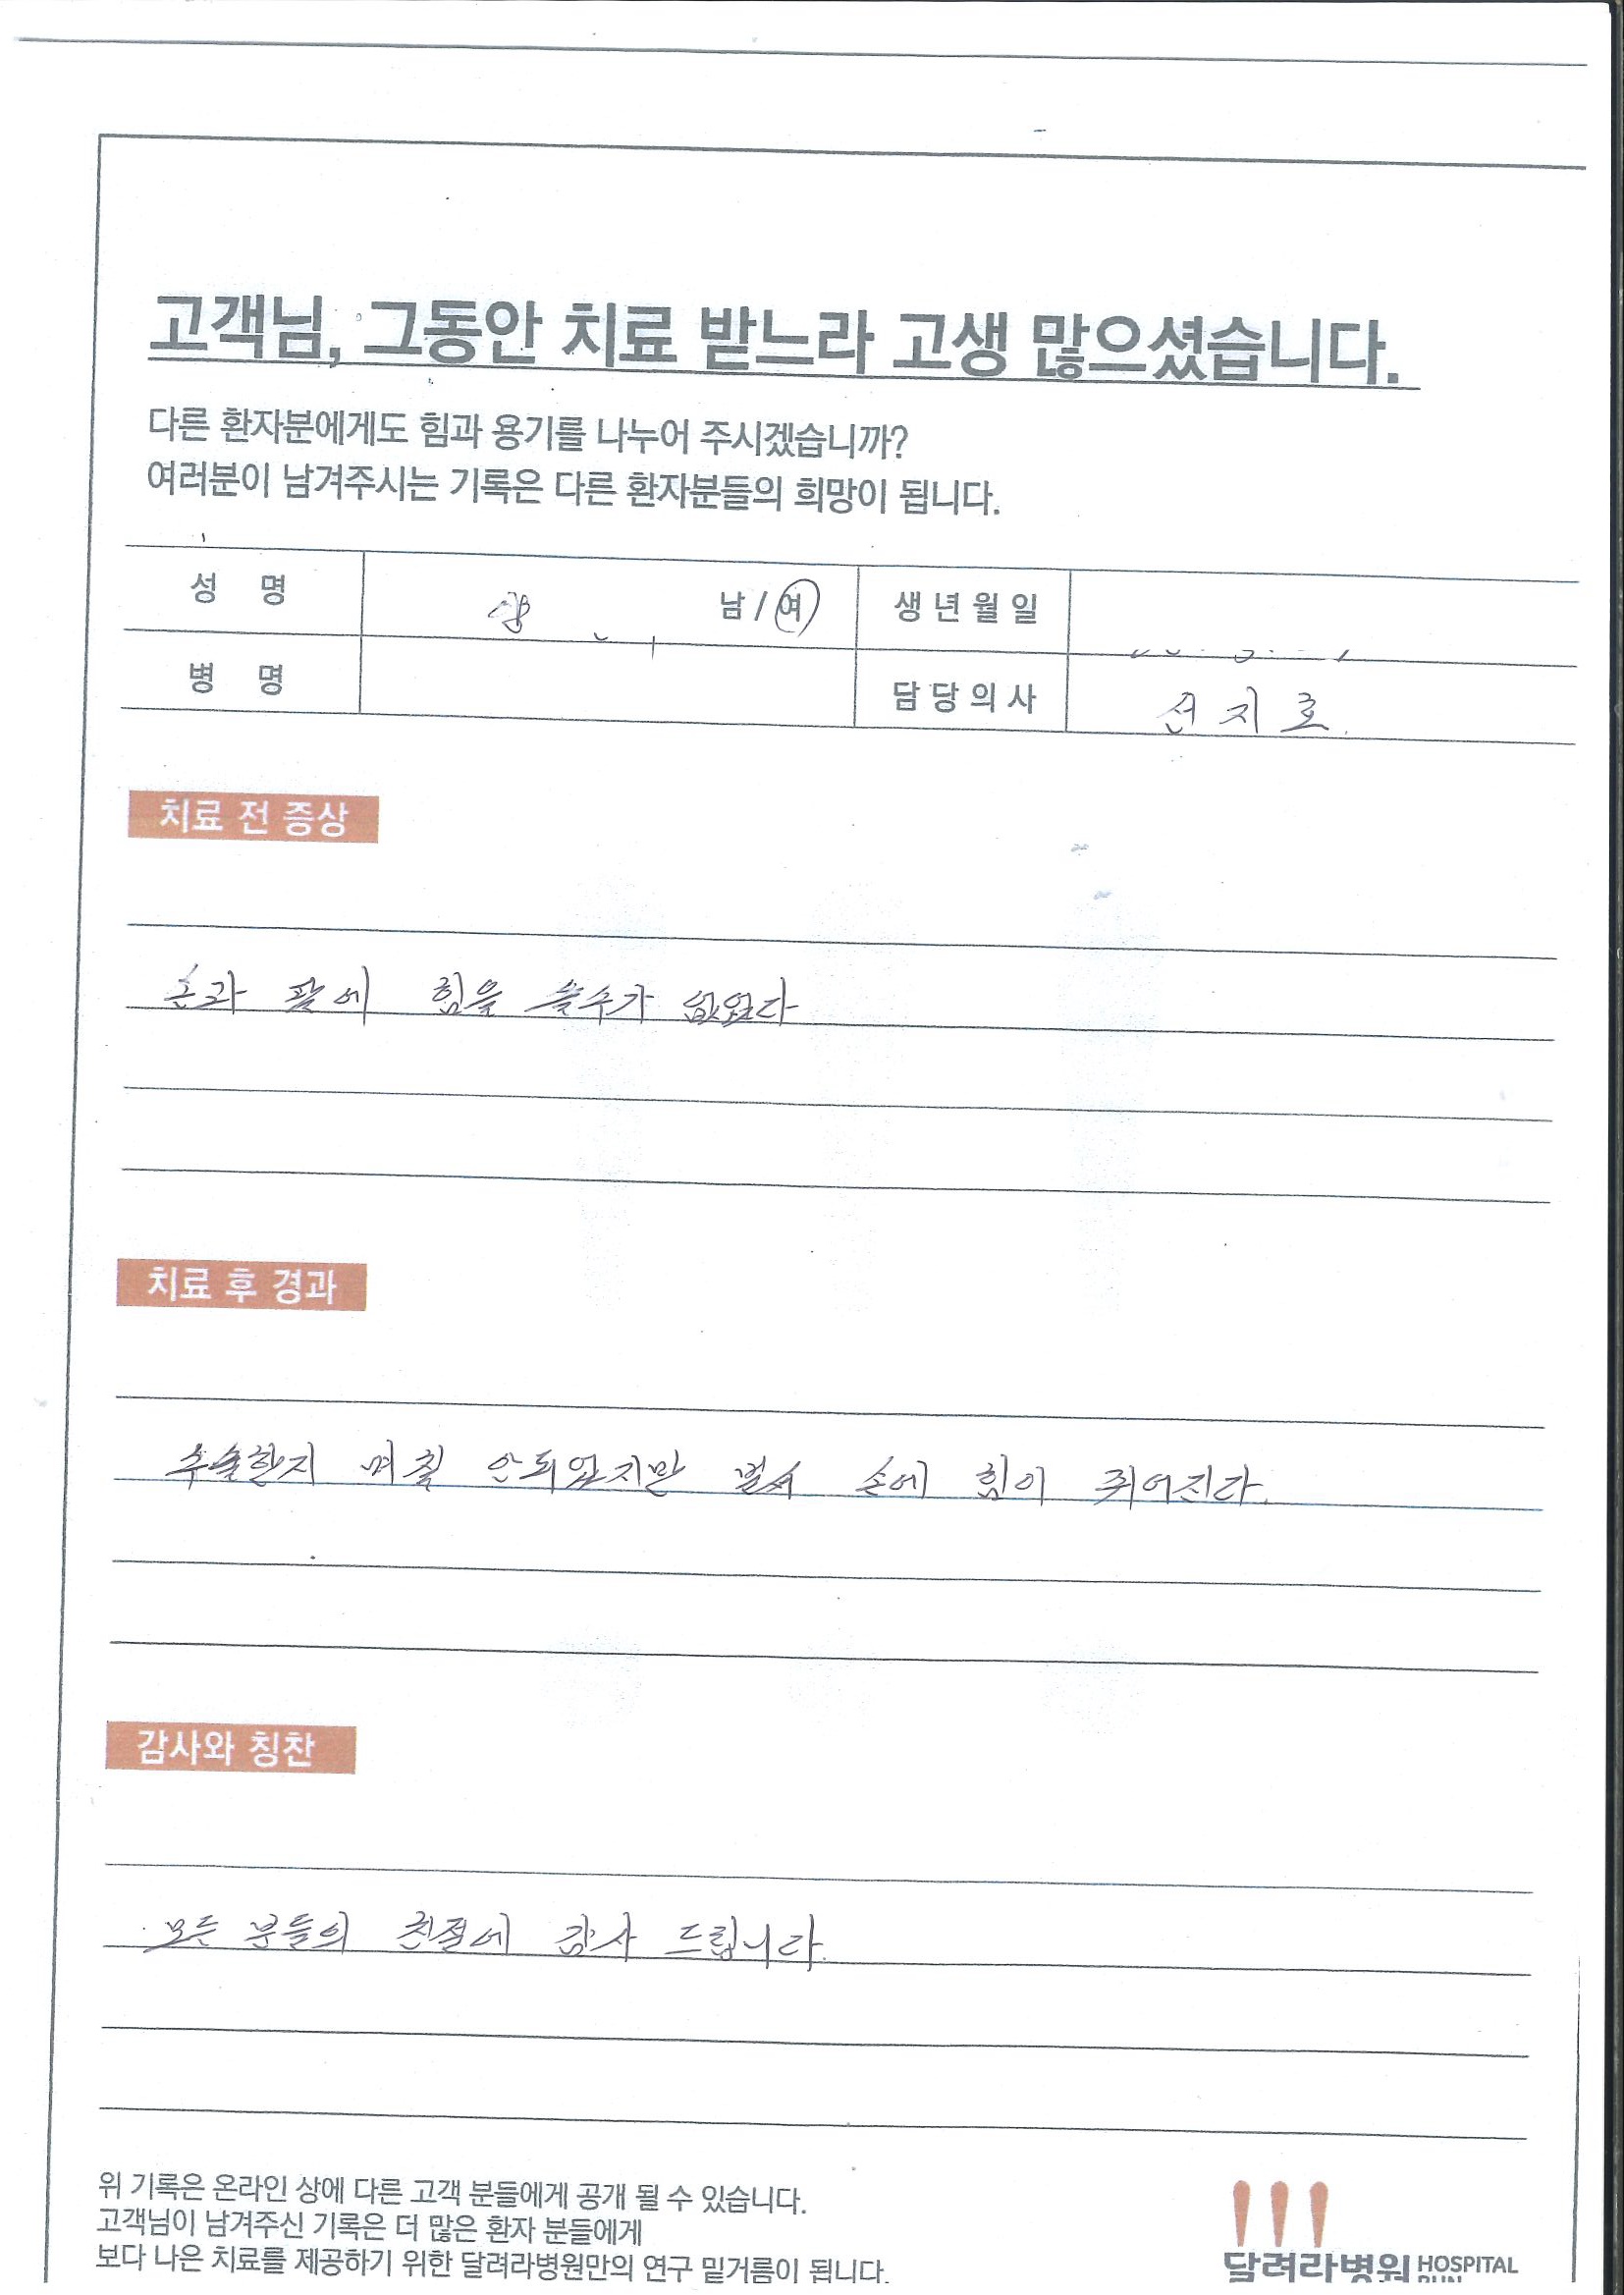 고객님, 그동안 치료 받느라 고생 많으셨습니다.
다른 환자분에게도 힘과 용기를 나누어 주시겠습니까?
여러분이 남겨주시는 기록은 다른 환자분들의 희망이 됩니다.
성 명 남 / 여 생년월일
병 명 담당의사 선지호.
치료 전 증상
손과 팔에 힘을 쓸수가 없었다
치료 후 경과
수술한지 며칠 안되었지만 벌써 손에 힘이 쥐어진다.
감사와 칭찬
모든 분들의 친절에 감사 드립니다.
위 기록은 온라인 상에 다른 고객 분들에게 공개 될 수 있습니다.
고객님이 남겨주신 기록은 더 많은 환자 분들에게
보다 나은 치료를 제공하기 위한 달려라병원만의 연구 밑거름이 됩니다.
달려라병원 HOSPITAL
RUN